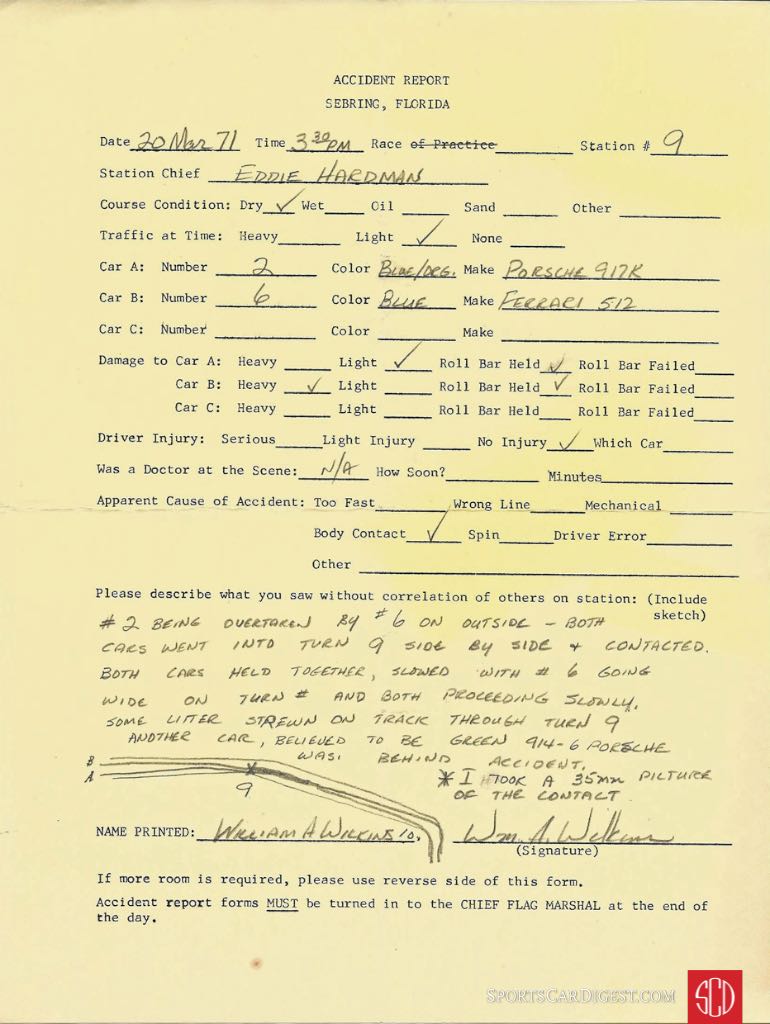 ACCIDENT REPORT
SEBRING, FLORIDA
Date 20 Mar 71 Time 3 30 PM Race of Practice Station # 9
Station Chief EDDIE HARDMAN
Course Condition: Dry ✓ Wet Oil Sand Other
Traffic at Time: Heavy Light ✓ None
Car A: Number 2 Color BLUE/ORG. Make PORSCHE 917K
Car B: Number 6 Color BLUE Make FERRARI 512
Car C: Number Color Make
Damage to Car A: Heavy Light ✓ Roll Bar Held ✓ Roll Bar Failed
Car B: Heavy ✓ Light Roll Bar Held ✓ Roll Bar Failed
Car C: Heavy Light Roll Bar Held Roll Bar Failed
Driver Injury: Serious Light Injury No Injury ✓ Which Car
Was a Doctor at the Scene: N/A How Soon? Minutes
Apparent Cause of Accident: Too Fast Wrong Line Mechanical
Body Contact ✓ Spin Driver Error
Other
Please describe what you saw without correlation of others on station: (Include
sketch)
#2 BEING OVERTAKEN BY #6 ON OUTSIDE - BOTH
CARS WENT INTO TURN 9 SIDE BY SIDE + CONTACTED.
BOTH CARS HELD TOGETHER, SLOWED WITH #6 GOING
WIDE ON TURN # AND BOTH PROCEEDING SLOWLY.
SOME LITTER STREWN ON TRACK THROUGH TURN 9
ANOTHER CAR, BELIEVED TO BE GREEN 914-6 PORSCHE
WAS. BEHIND ACCIDENT.
B
A
9
* I TOOK A 35mm PICTURE
OF THE CONTACT
NAME PRINTED: WILLIAM A WILKINS Wm. A. Wilkins
(Signature)
If more room is required, please use reverse side of this form.
Accident report forms MUST be turned in to the CHIEF FLAG MARSHAL at the end of
the day.
SPORTSCARDIGEST.COM SCD